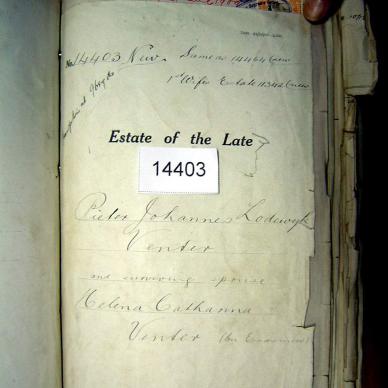 No. 14403 New. Same as 14464 (new
1st Wife Estate 11342 (new
Estate of the Late
14403
Pieter Johannes Lodewyk
Venter
and surviving spouse
Helena Catharina
Venter